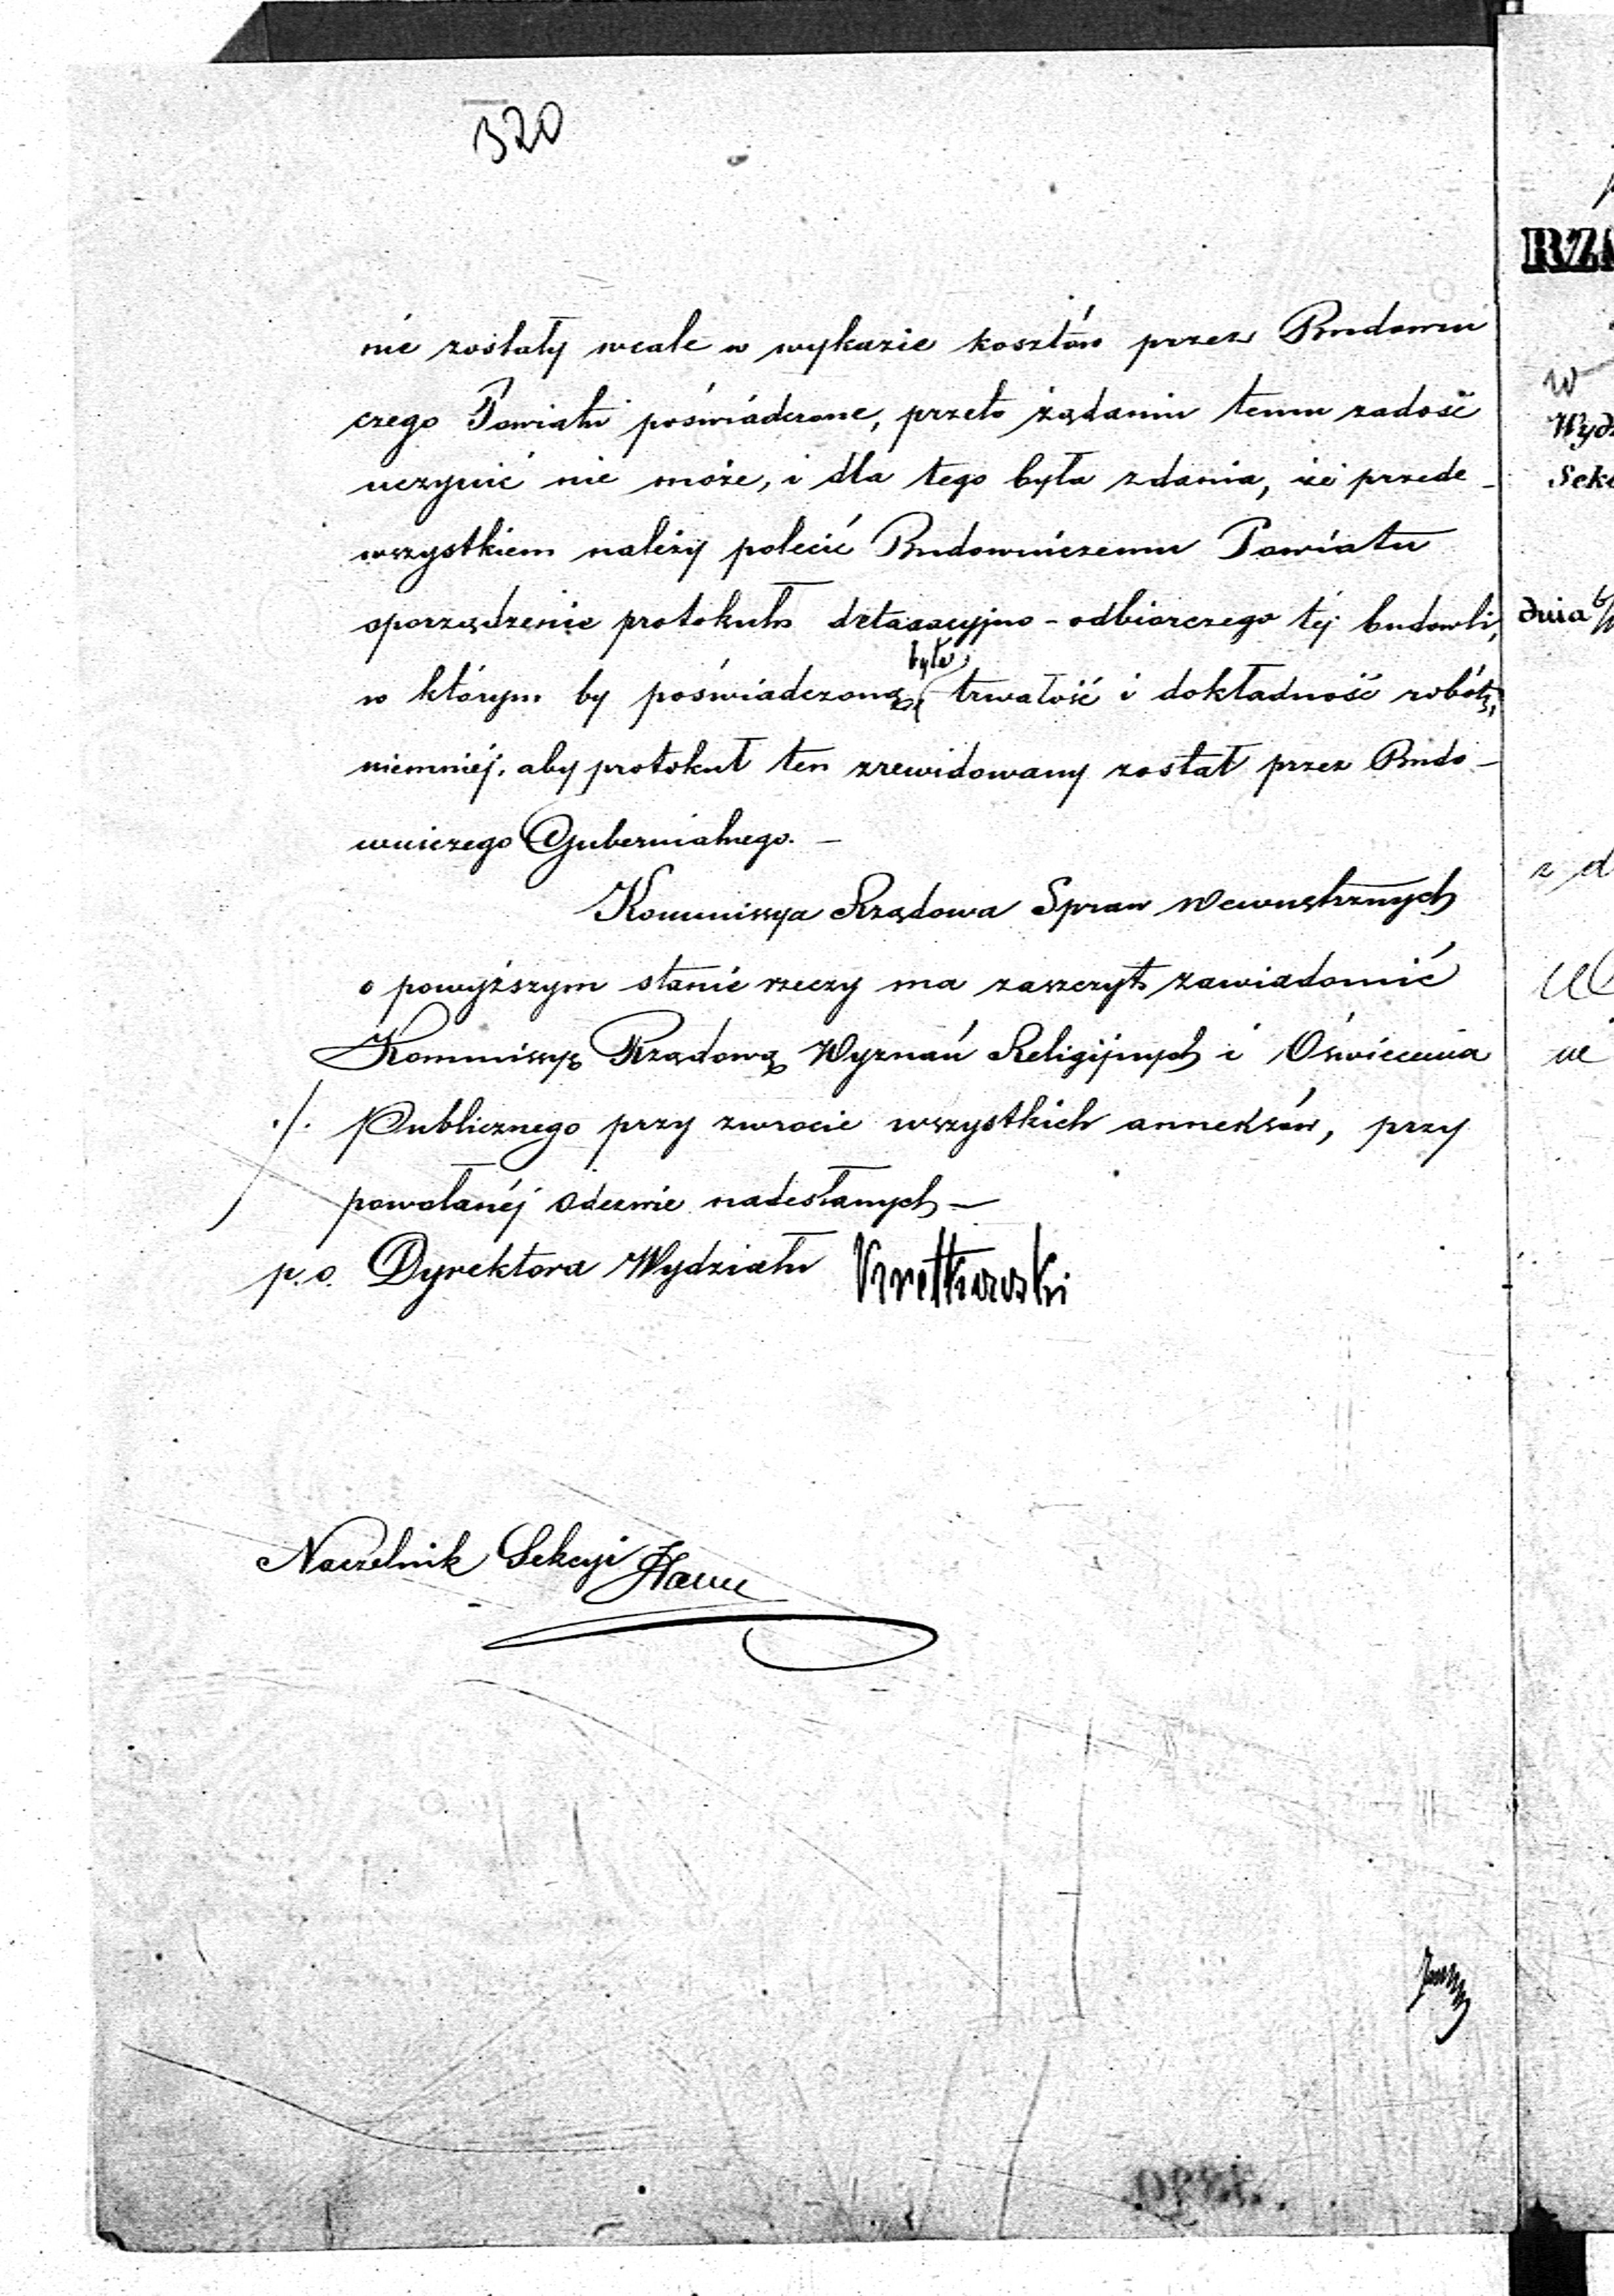 320
nie zostały wcale w wykazie kosztów przez Budowni
czego Powiatu poświadczone, przeto żądaniu temu zadość
uczynić nie może, i dla tego była zdania, że przede-
wszystkiem należy polecić Budowniczemu Powiatu
sporządzenie protokułu detaxacyjno-odbiorczego téj budowli,
w którym by poświadczoną była trwałość i dokładność robót,
niemniéj, aby protokuł ten zrewidowany został przez Budo-
wniczego Gubernialnego. —
Kommissya Rządowa Spraw Wewnętrznych
o powyższym stanie rzeczy ma zaszczyt zawiadomić
Kommissyę Rządową Wyznań Religijnych i Oświecenia
./. Publicznego przy zwrocie wszystkich anneksów, przy
powołanéj odezwie nadesłanych —
p.o. Dyrektora Wydziału
Naczelnik Sekcyi
RZ
W
Wyd
Sek
dnia
z d